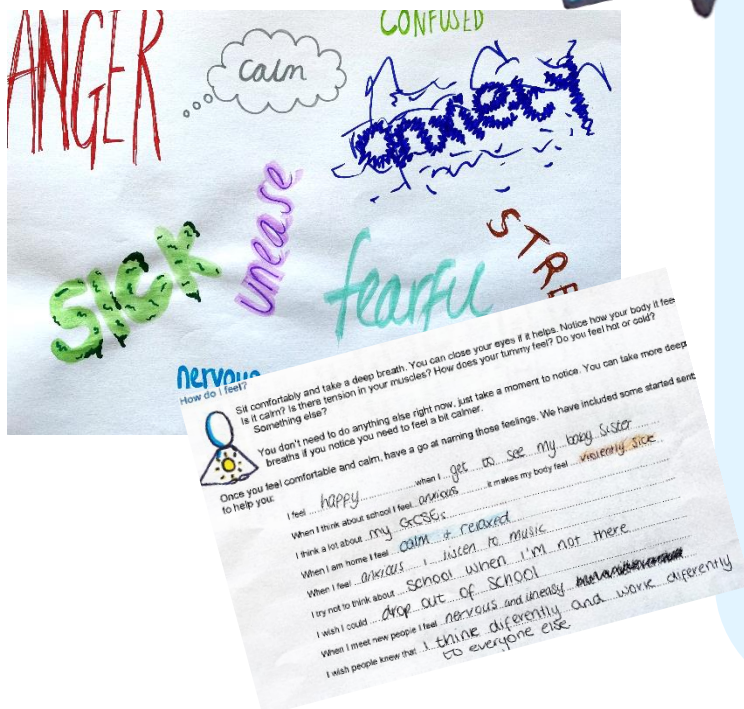 ANGER
calm
CONFUSED
anxiety
SICK
unease
STRE
fearful
nervous
How do I feel?
Sit comfortably and take a deep breath. You can close your eyes if it helps. Notice how your body it fee
Is it calm? Is there tension in your muscles? How does your tummy feel? Do you feel hot or cold?
Something else?
You don't need to do anything else right now, just take a moment to notice. You can take more deep
breaths if you notice you need to feel a bit calmer.
Once you feel comfortable and calm, have a go at naming those feelings. We have included some started sent
to help you:
I feel happy when I get to see my baby sister
When I think about school I feel anxious it makes my body feel violently sick
I think a lot about my GCSEs
When I am home I feel calm + relaxed
When I feel anxious I listen to music
I try not to think about school when I'm not there
I wish I could drop out of school
When I meet new people I feel nervous and uneasy
I wish people knew that I think diferently and work diferently
to everyone else